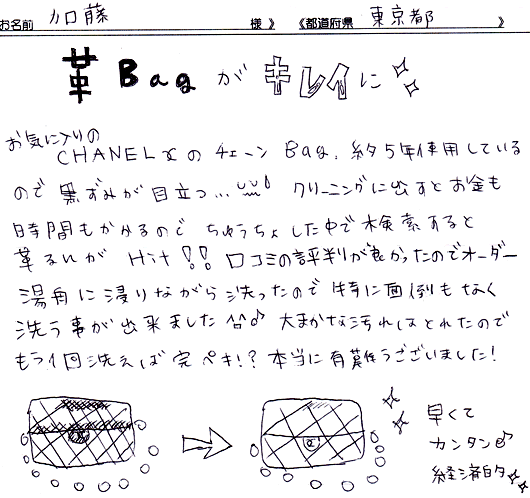 お名前 加藤 様 》 《都道府県 東京都 》
革 Bag が キレイに
お気に入りの
CHANELxのチェーンBag、約5年使用している
ので黒ずみが目立つ… クリーニングに出すとお金も
時間もかかるので ちゅうちょした中で検索すると
革るんが Hit!! 口コミの評判が良かったのでオーダー
湯舟に浸りながら洗ったので特に面倒もなく
洗う事が出来ました♪ 大まかな汚れはとれたので
もう1回洗えば完ペキ!? 本当に有難うございました!
早くて
カンタン♪
経済的